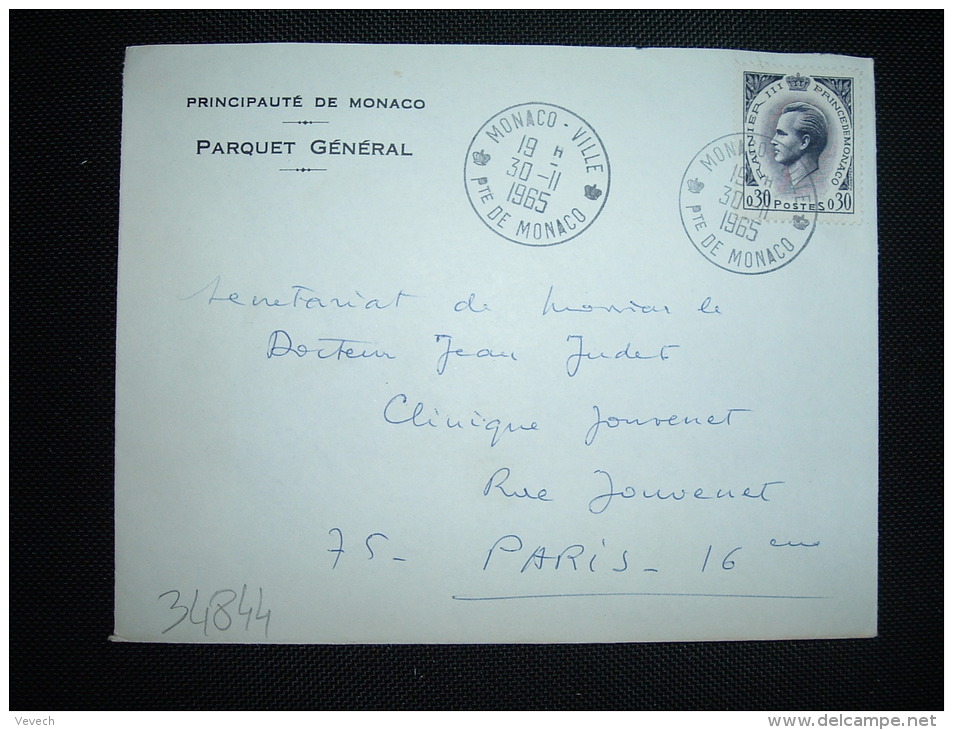 PRINCIPAUTÉ DE MONACO
PARQUET GÉNÉRAL
MONACO - VILLE
19 H
30 - 11
1965
PTE DE MONACO
RAINIER III PRINCE DE MONACO
0,30 POSTES 0,30
MONACO - VILLE
19 H
30 - 11
1965
PTE DE MONACO
Secretariat de Monsieur le
Docteur Jean Judet
Clinique Jouvenet
Rue Jouvenet
75 - PARIS - 16 eme
34844
Vevech
www.delcampe.net